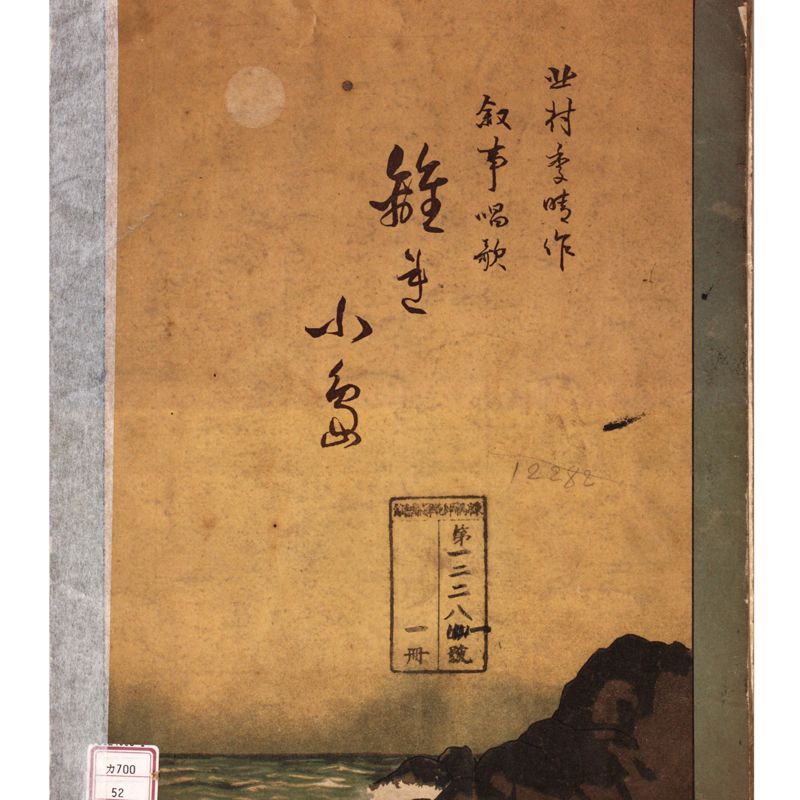 北村季晴作
叙事唱歌
離れ
小島
12282
第一二二八一號
一冊
カ700
52